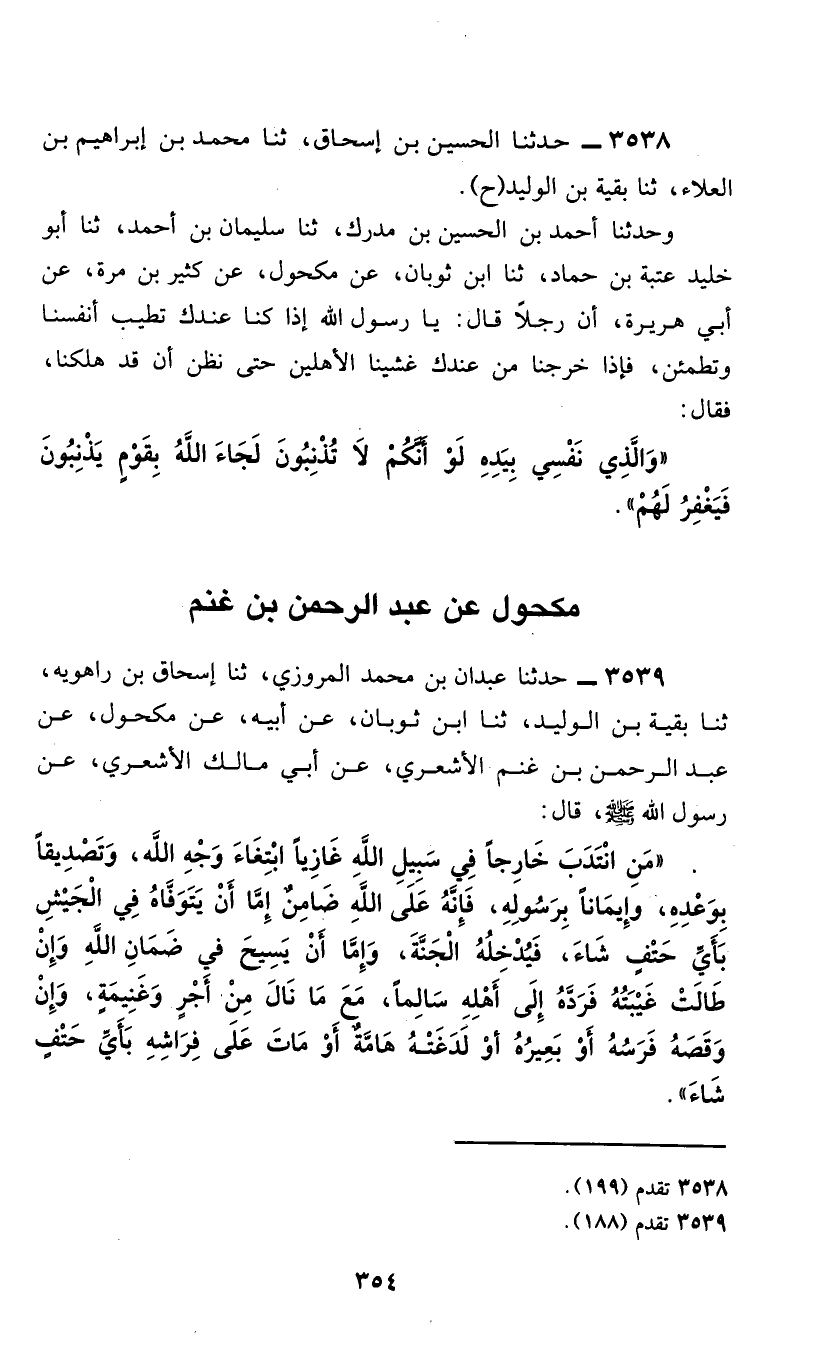 ٣٥٣٨ ـ حدثنا الحسين بن إسحاق، ثنا محمد بن إبراهيم بن
العلاء، ثنا بقية بن الوليد(ح).
وحدثنا أحمد بن الحسين بن مدرك، ثنا سليمان بن أحمد، ثنا أبو
خليد عتبة بن حماد، ثنا ابن ثوبان، عن مكحول، عن كثير بن مرة، عن
أبي هريرة، أن رجلاً قال: يا رسول الله إذا كنا عندك تطيب أنفسنا
وتطمئن، فإذا خرجنا من عندك غشينا الأهلين حتى نظن أن قد هلكنا،
فقال:
«وَالَّذِي نَفْسِي بِيَدِهِ لَوْ أَنَّكُمْ لاَ تُذْنِبُونَ لَجَاءَ اللَّهُ بِقَوْمٍ يَذْنِبُونَ
فَيَغْفِرُ لَهُمْ».
مكحول عن عبد الرحمن بن غنم
٣٥٣٩ ـ حدثنا عبدان بن محمد المروزي، ثنا إسحاق بن راهويه،
ثنا بقية بن الوليد، ثنا ابن ثوبان، عن أبيه، عن مكحول، عن
عبد الرحمن بن غنم الأشعري، عن أبي مالك الأشعري، عن
رسول الله ﷺ، قال:
«مَنِ انْتَدَبَ خَارِجاً فِي سَبِيلِ اللَّهِ غَازِياً ابْتِغَاءَ وَجْهِ اللَّه، وَتَصْدِيقاً
بِوَعْدِهِ، وإِيمَاناً بِرَسُولِهِ، فَإِنَّهُ عَلَى اللَّهِ ضَامِنٌ إِمَّا أَنْ يَتَوَفَّاهُ فِي الْجَيْشِ
بَأَيِّ حَتْفٍ شَاءَ، فَيُدْخِلُهُ الْجَنَّةَ، وَإِمَّا أَنْ يَسِيحَ في ضَمَانِ اللَّهِ وَإِنْ
طَالَتْ غَيْبَتُهُ فَرَدَّهُ إِلَى أَهْلِهِ سَالِماً، مَعَ مَا نَالَ مِنْ أَجْرٍ وَغَنِيمَةٍ، وَإِنْ
وَقَصَهُ فَرَسُهُ أَوْ بَعِيرُهُ أوْ لَدَغَتْهُ هَامَّةٌ أَوْ مَاتَ عَلَى فِرَاشِهِ بَأَيِّ حَتْفٍ
شَاءَ».
٣٥٣٨ تقدم (١٩٩).
٣٥٣٩ تقدم (١٨٨).
٣٥٤